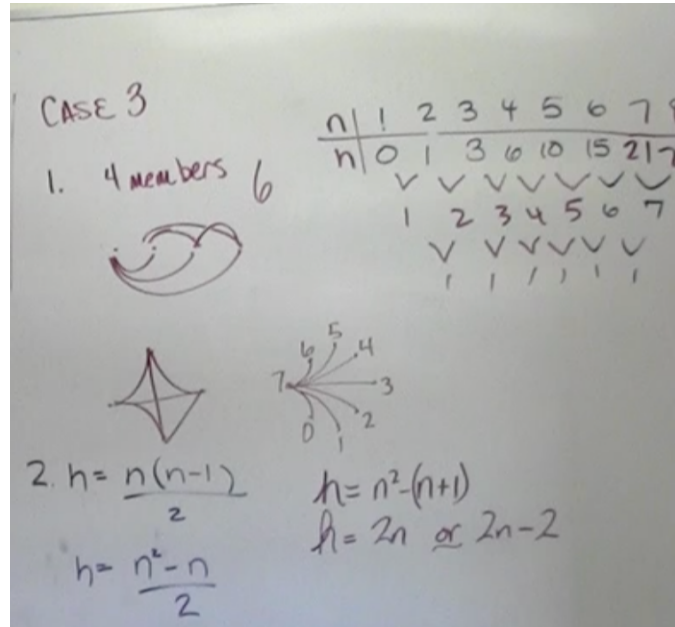 CASE 3
1. 4 members 6
n | 1 2 3 4 5 6 7
h | 0 1 3 6 10 15 21
1 2 3 4 5 6 7
1 1 1 1 1 1
7 6 5 4 3 2 1 0
2. h = n(n-1)/2
h = n²-n/2
h = n²-(n+1)
h = 2n or 2n-2